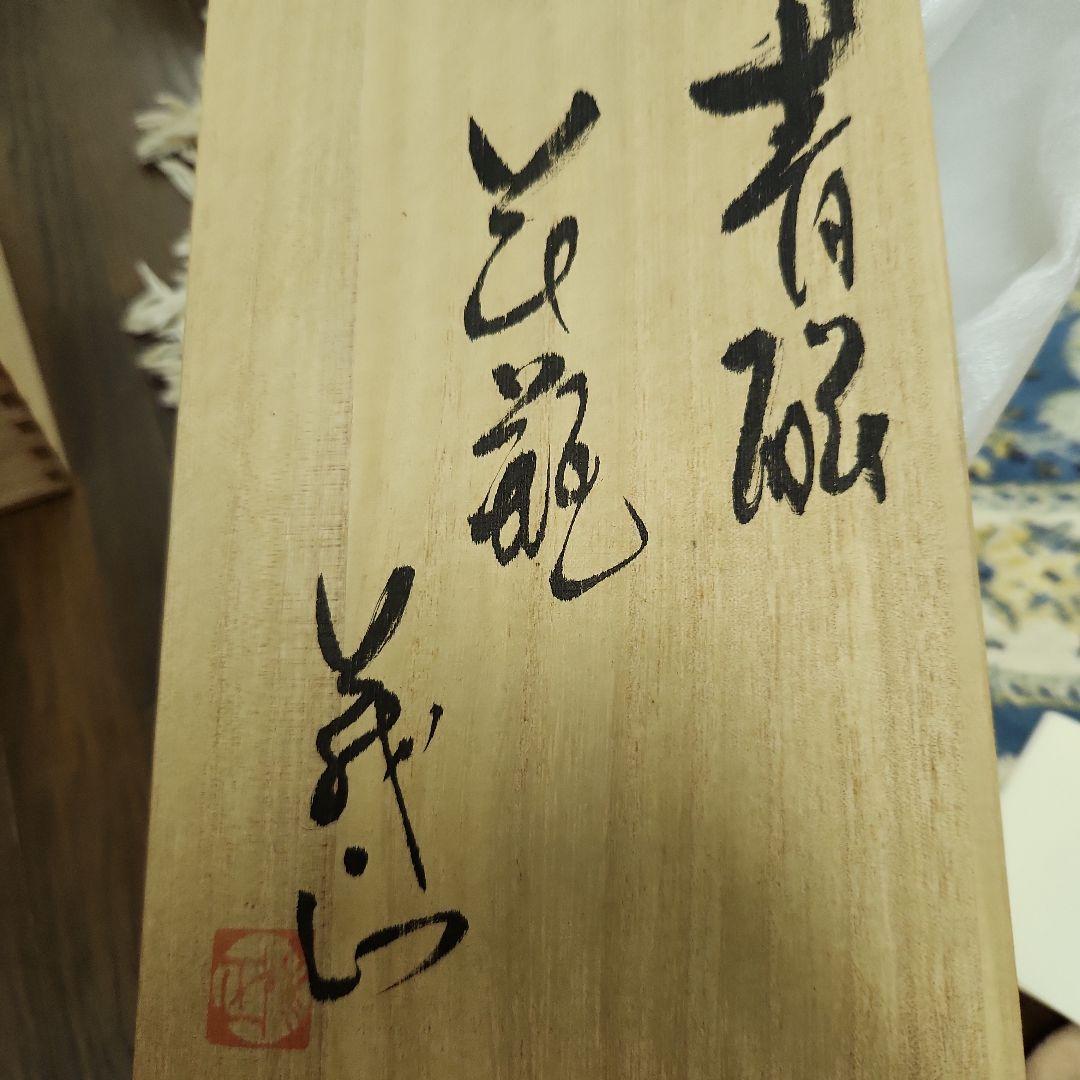 青磁
花瓶
義山